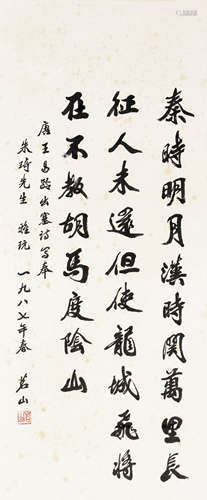 秦時明月漢時関萬里長
征人未還但使龍城飛將
在不教胡馬度陰山
唐王昌齡出塞詩写奉
朱琦先生 雅玩 一九八七年春 茗山